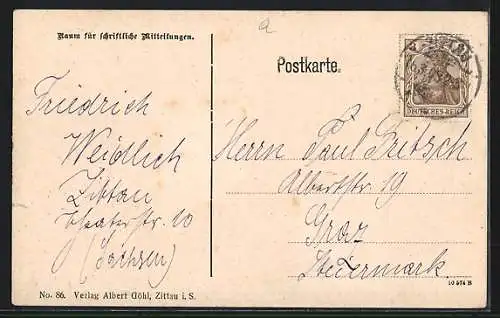 Raum für schriftliche Mitteilungen.
a
Postkarte.
DEUTSCHES REICH
Friedrich
Weidlich
Zittau
Theaterstr. 10
(Sachsen)
Herrn Paul Fritsch
Albertstr. 19
Graz
Steiermark
No. 86. Verlag Albert Göhl, Zittau i. S.